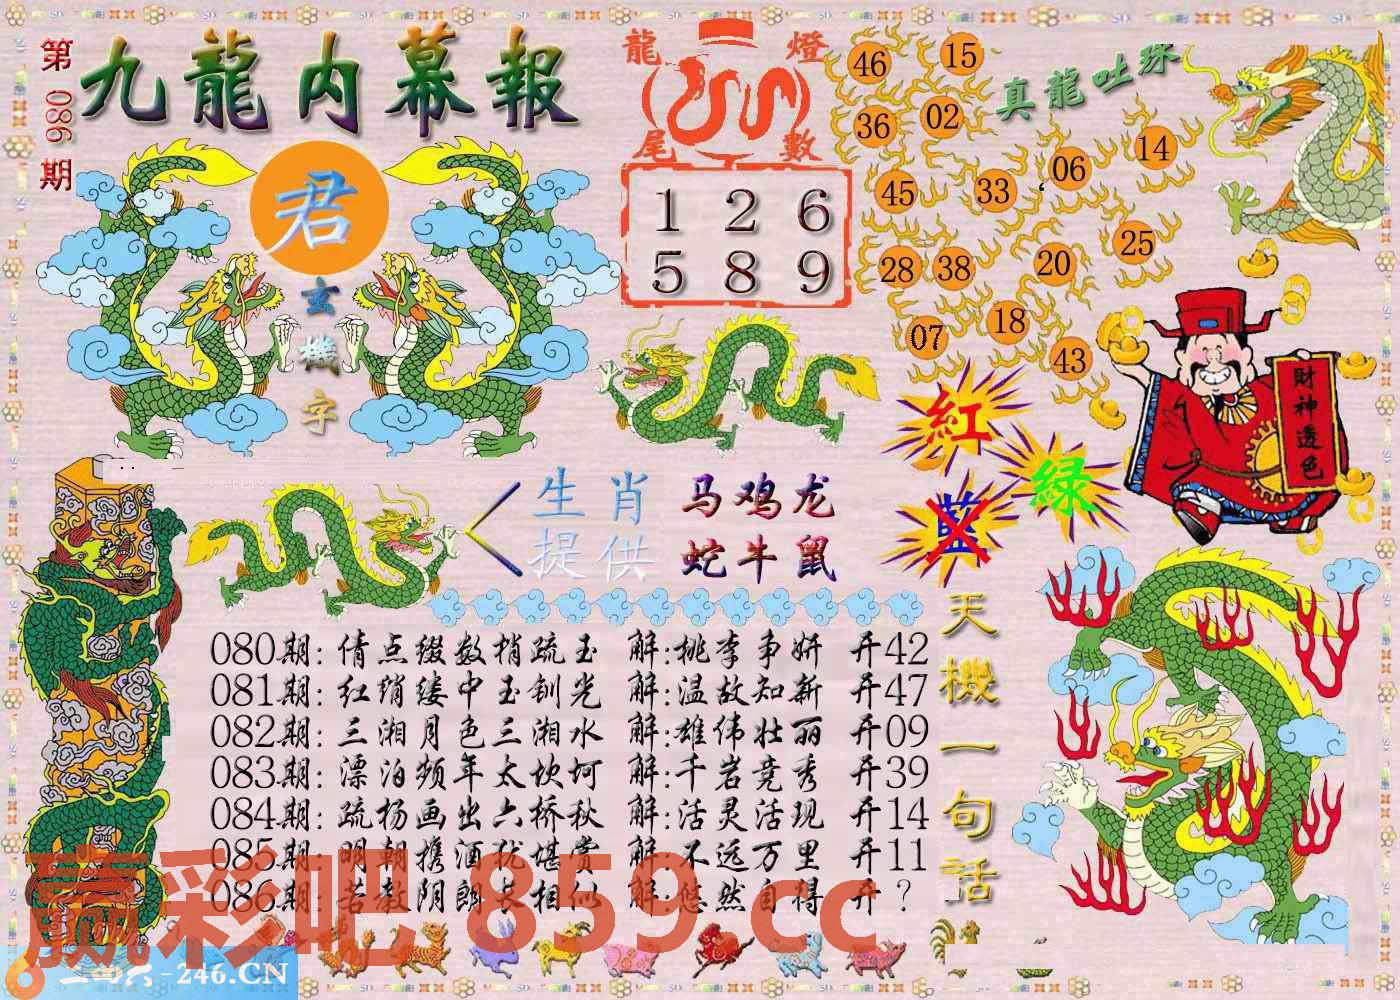 第086期
九龍内幕報
君
玄機字
龍燈
尾數
1 2 6
5 8 9
真龍吐珠
46 15
36 02
45 33 06 14
28 38 20 25
07 18 43
財神透色
紅
绿
藍
生肖
提供
马鸡龙
蛇牛鼠
天機一句話
080期:倩点缀数梢疏玉 解:桃李争妍 开42
081期:红绡缕中玉钏光 解:温故知新 开47
082期:三湘月色三湘水 解:雄伟壮丽 开09
083期:漂泊频年太坎坷 解:千岩竞秀 开39
084期:疏杨画出六桥秋 解:活灵活现 开14
085期:明朝携酒犹堪赏 解:不远万里 开11
086期:若教阴朗长相似 解:悠然自得 开?
赢彩吧 859.cc
二四六-246.CN